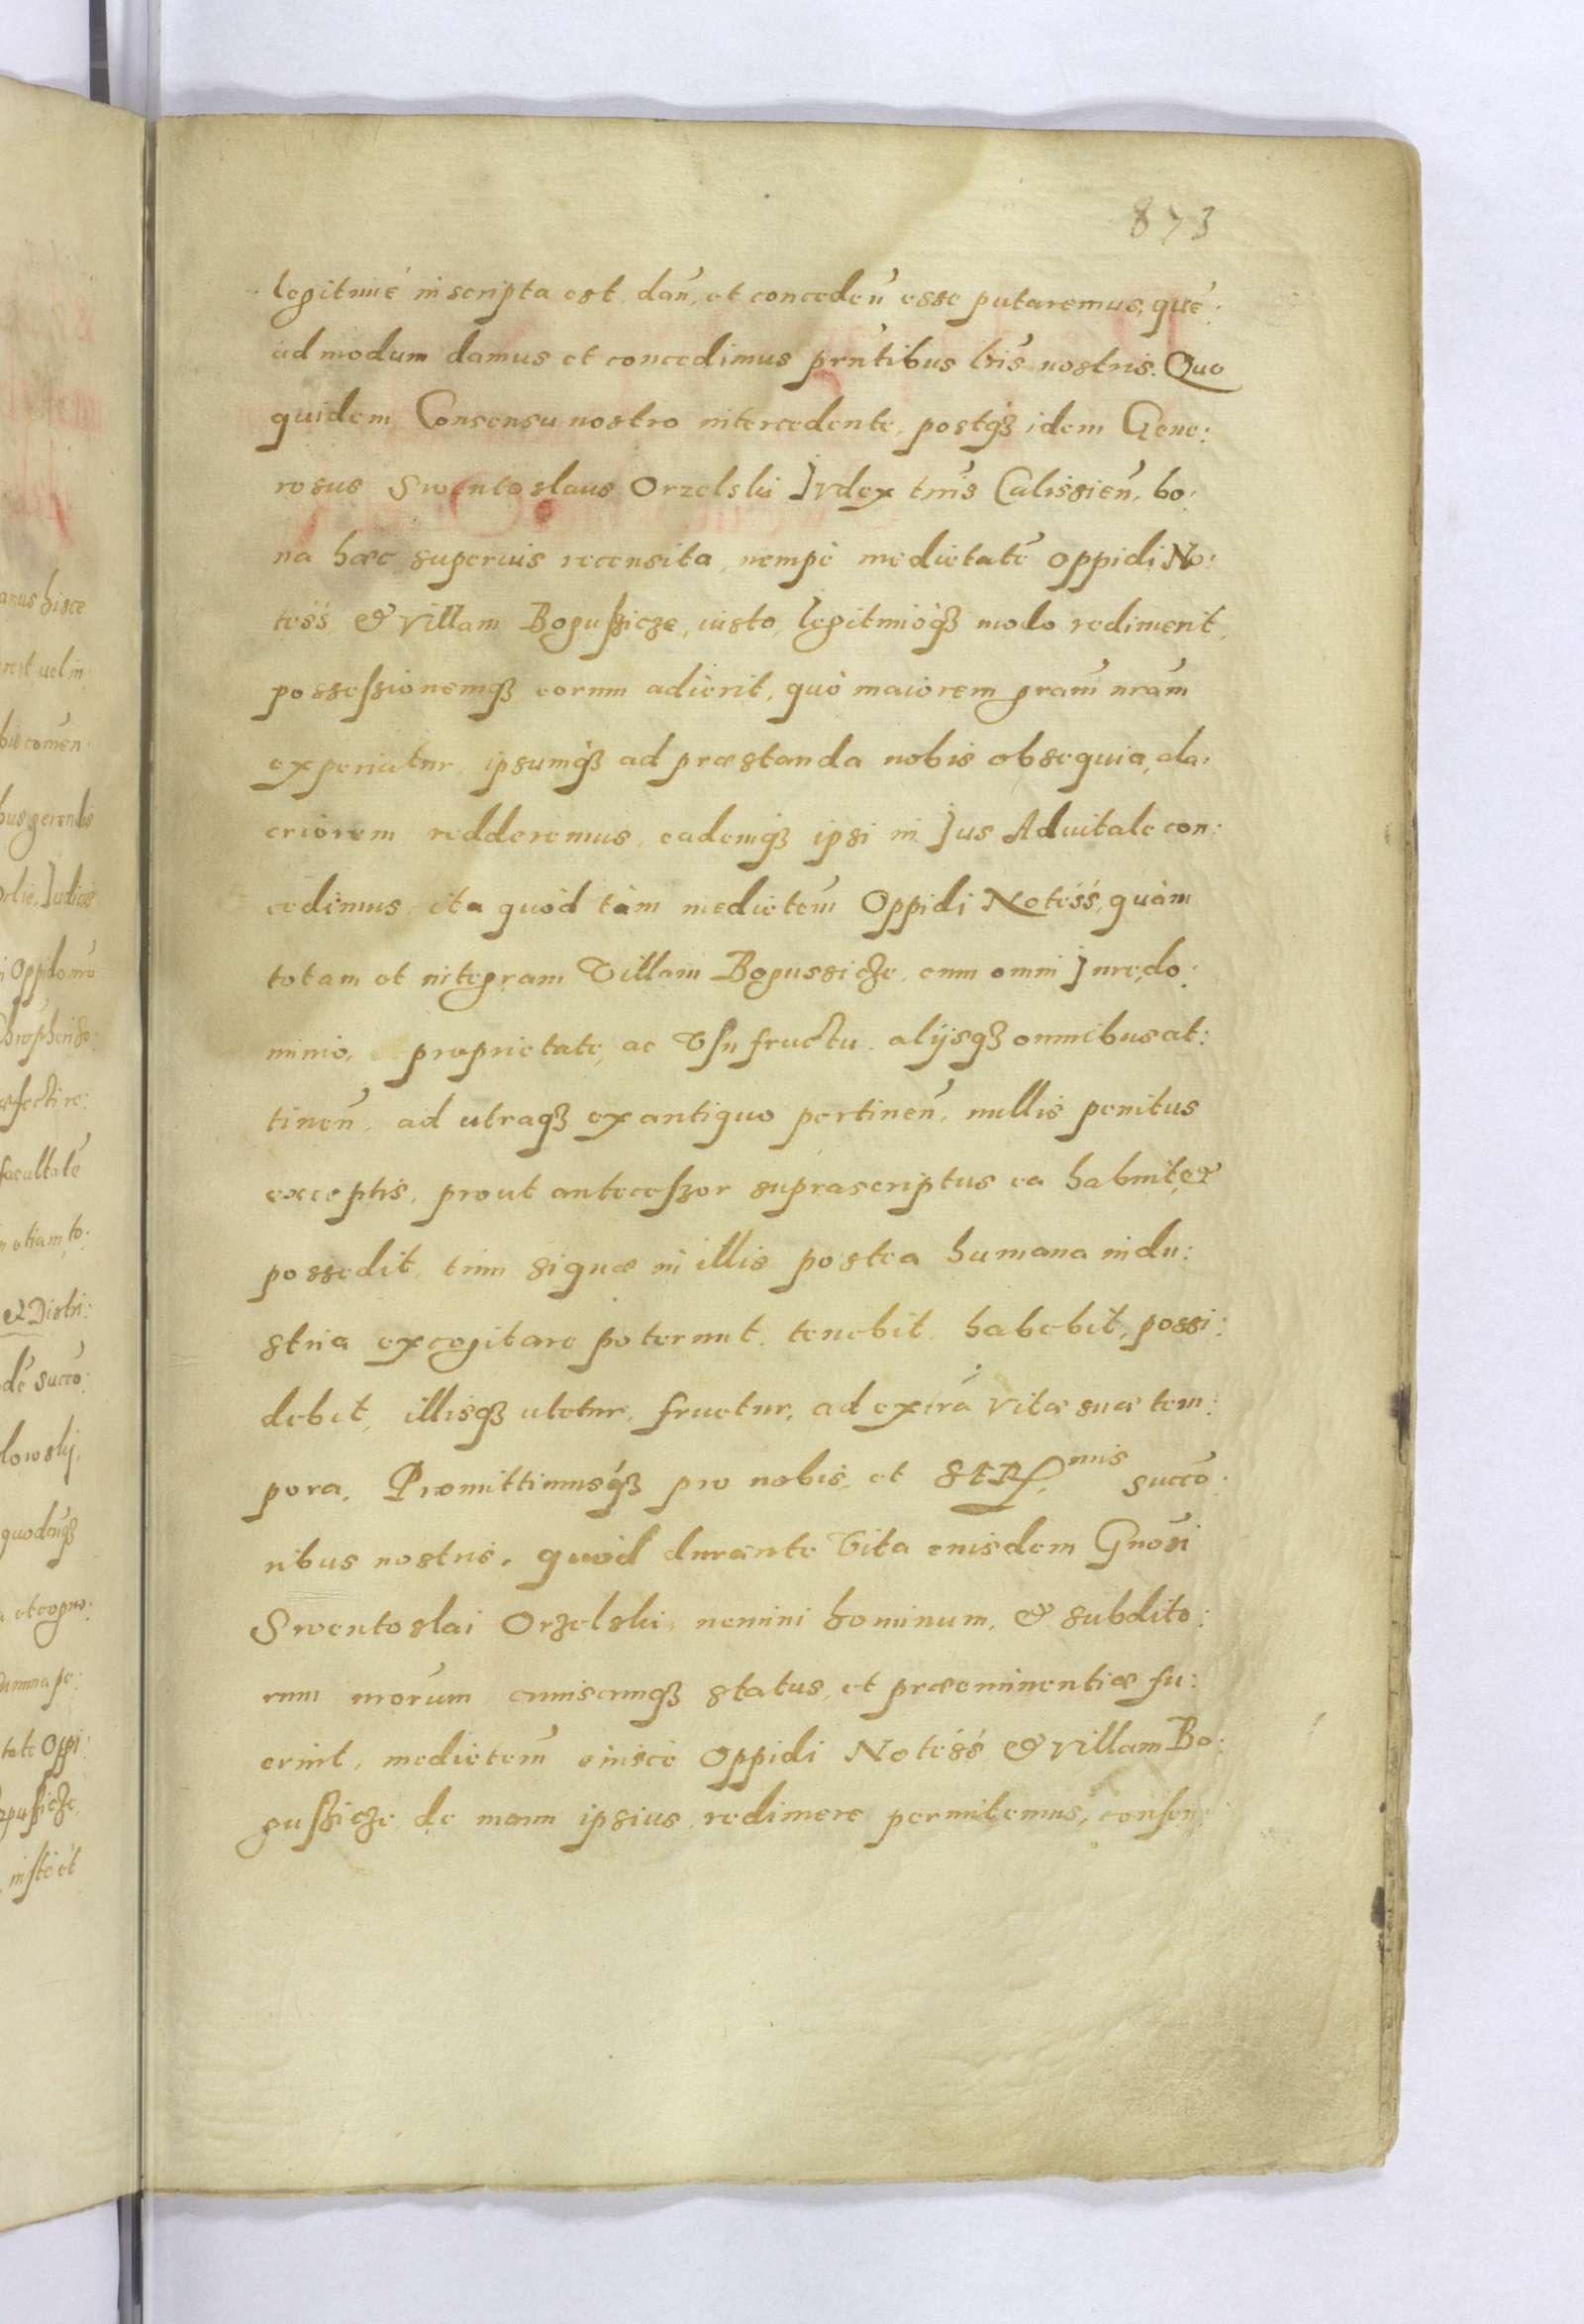 873
legitimé inscripta est dañ, et concedeñ esse putaremus, qué:
admodum damus et concedimus prñtibus lris nostris. Quo
quidem Consensu nostro intercedente, postq̃ idem Gene:
rosus Swentoslaus Orzelski Judex trris Calissieñ, bo:
na hæc superius recensita, nempè medietatē oppidi No:
tess & villam Boguszicze, iusto, legitimoq̃ modo redimerit,
possessionemq̃ eorum adierit, quò maiorem gram̃ nram̃
experiatur, ipsumq̃ ad præstanda nobis obsequia, ala:
criorem redderemus, eademq̃ ipsi in Jus Aduitale con:
cedimus, ita quòd tàm medietem̃ Oppidi Notess, quàm
totam et integram Villam Bogussicze, cum omni Jure, do:
minio, proprietate, ac Vsufructu, alijsq̃ omnibus at:
tineñ, ad utraq̃ ex antiquo pertineñ, nullis penitus
exceptis, prout antecessor suprascriptus ea habuit, &
possedit, tum siquæ in illis postea humana indu:
stria excogitare poterunt, tenebit, habebit, possi:
debit, illisq̃ utetur, fruetur, ad extra vitæ suæ tem:
pora. Promittimusq̃ pro nobis, et Ser.mis succo:
ribus nostris, quòd durante Vita eiusdem Gnosi
Swentoslai Orzelski, nemini hominum, & subdito:
rum nrorum cuiuscumq̃ status, et præeminentiæ fu:
erint, medietem̃ eiusce oppidi Notess & villam Bo:
gussicze de manu ipsius redimere permitemus, consen: